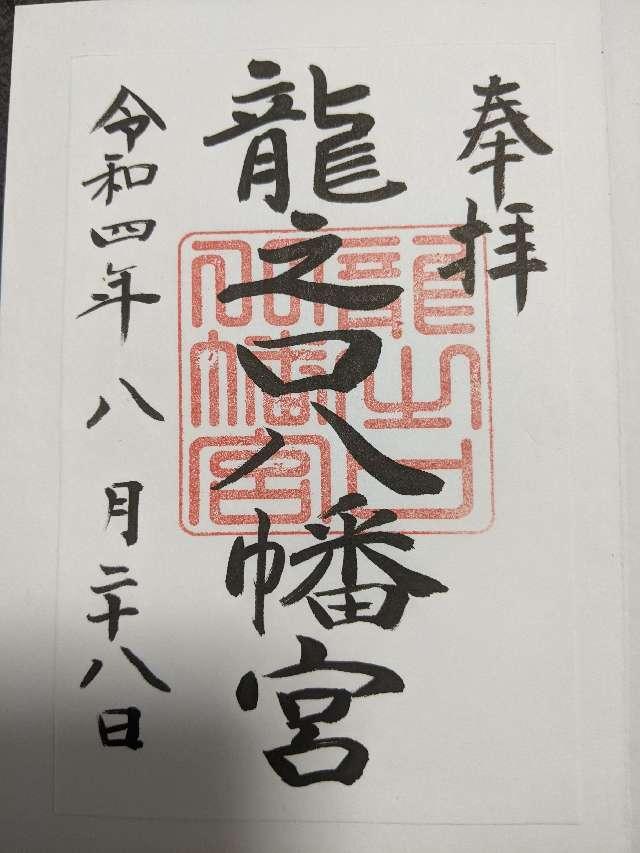 奉拝
龍之口八幡宮
龍之口
八幡宮
令和四年八月二十八日